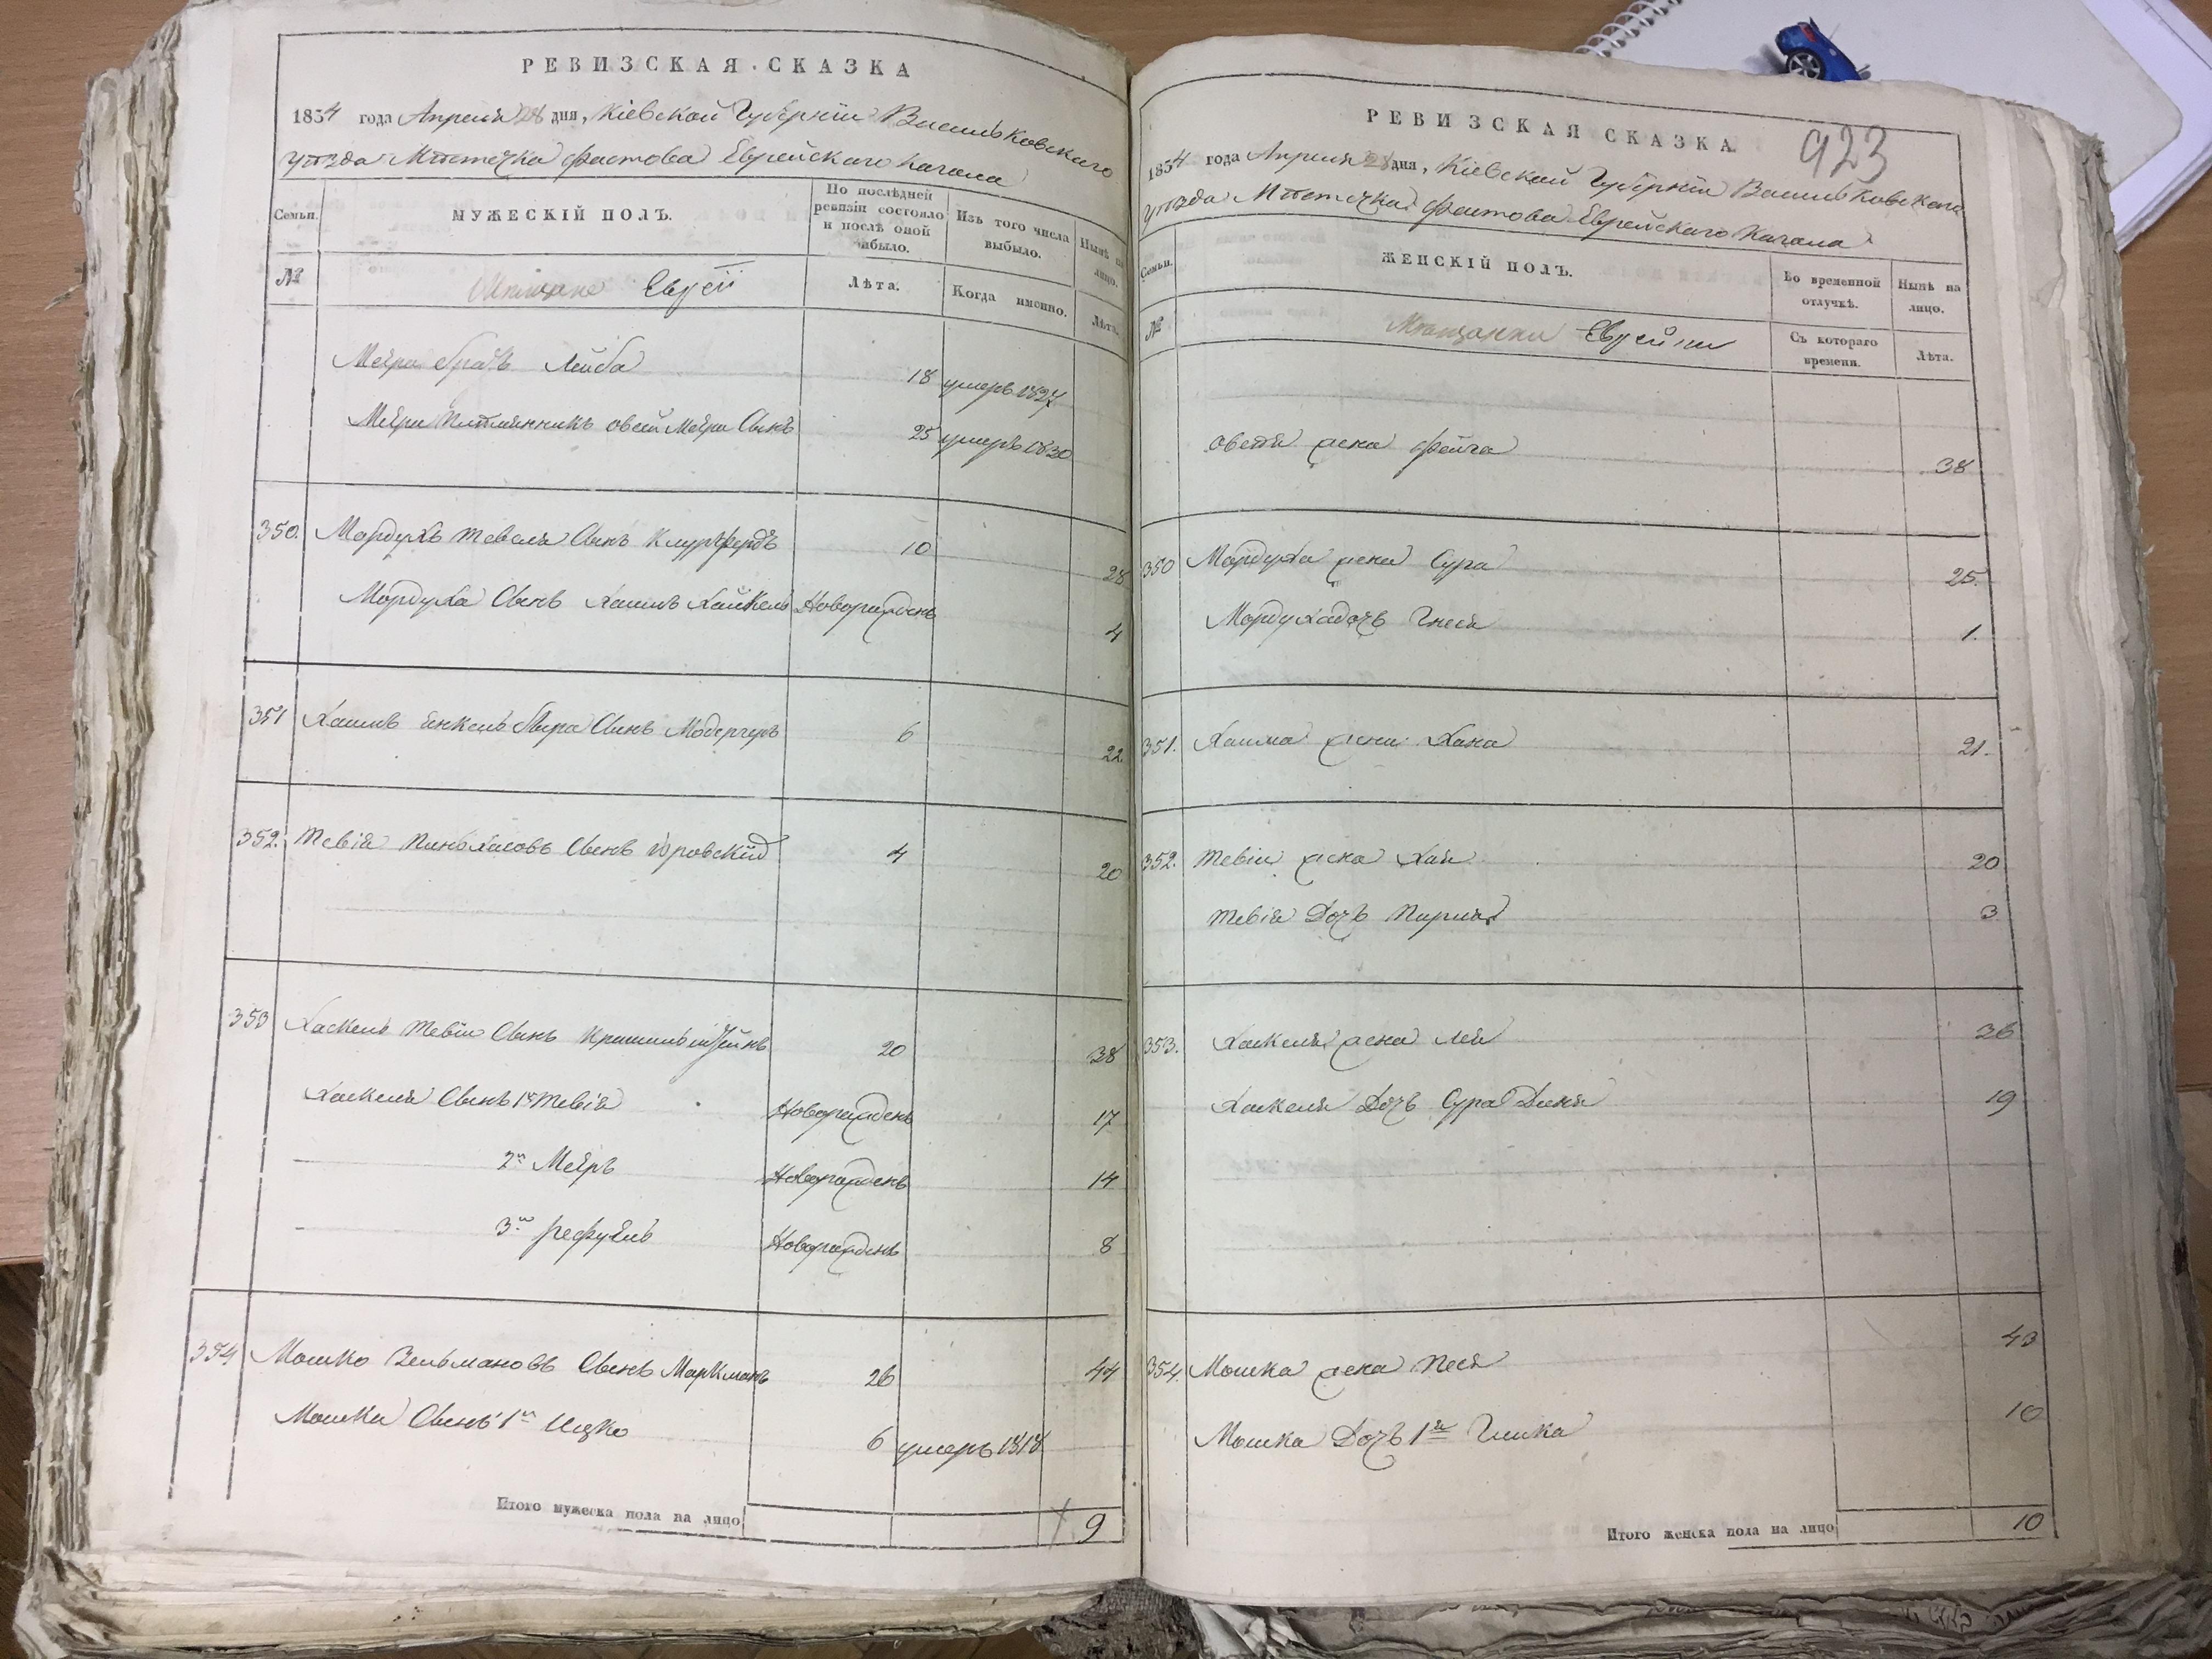 РЕВИЗСКАЯ СКАЗКА
1854 года Апреля 28 дня, Кіевской Губерніи Васильковского
уѣзда Мѣстечка Фастова Еврейского Кагала
Семьи.
МУЖЕСКІЙ ПОЛЪ.
По послѣдней ревизіи состояло и послѣ оной прибыло.
Изъ того числа выбыло.
Нынѣ на лицо.
№
Мѣщане Евреи
Лѣта.
Когда именно.
Лѣта.
Меера братъ Лейба 18 умеръ 1827
Меера племянникъ Овсей Меера Сынъ 25 умеръ 1830
350. Мордухъ Тевеля Сынъ 10 28
Мордуха Сынъ Хаимъ Хайкель Новорожденъ 4
351 Хаимъ Енкель Сынъ 6 22
352. Тевія Пинхасовъ Сынъ Юровскій 4 20
353 Хаскель Тевіи Сынъ 20 38
Хаскеля Сынъ 1й Тевія Новорожденъ 17
2й Мееръ Новорожденъ 14
3й Рефуель Новорожденъ 8
354 Мошко Зельмановъ Сынъ Маркманъ 26 44
Мошки Сынъ 1й Ицко 6 умеръ 1818
Итого мужеска пола на лицо 9
РЕВИЗСКАЯ СКАЗКА
923
1854 года Апреля 28 дня, Кіевской Губерніи Васильковского
уѣзда Мѣстечка Фастова Еврейского Кагала
Семьи.
ЖЕНСКІЙ ПОЛЪ.
Во временной отлучкѣ.
Нынѣ на лицо.
№
Мѣщанки Еврейки
Съ котораго времени.
Лѣта.
Овсея жена Фейга 38
350 Мордуха жена Сура 25.
Мордуха дочь Гнеся 1.
351. Хаима жена Хана 21.
352. Тевіи жена Хая 20
Тевія Дочь 3
353. Хаскеля жена Лея 36
Хаскеля Дочь Сура 19
354. Мошка жена Песя 43
Мошка Дочь 1я 10
Итого женска пола на лицо 10